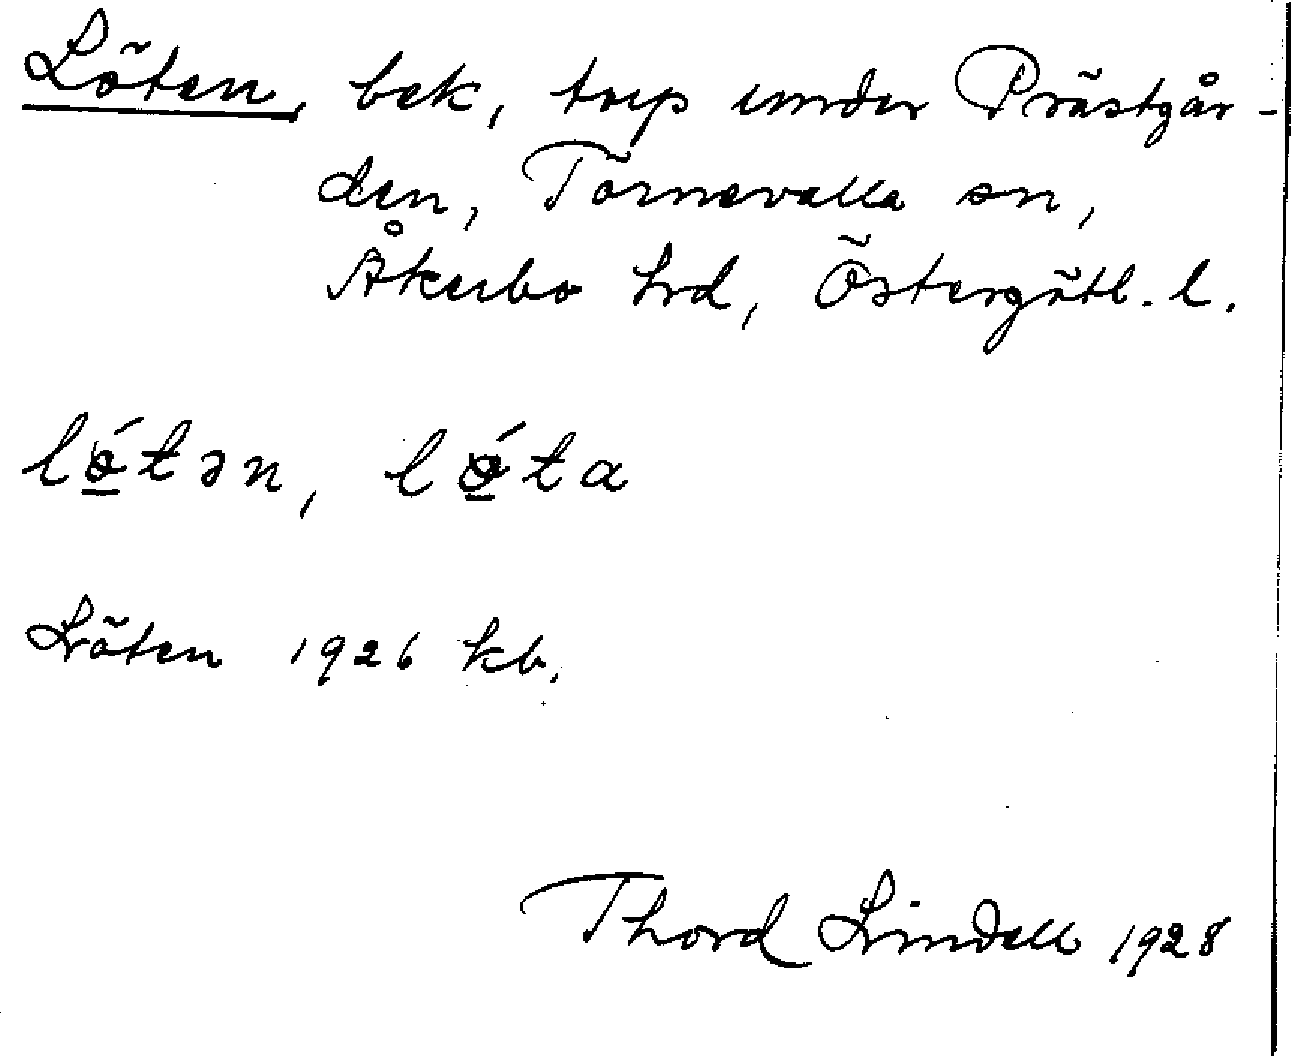 Löten, bek, torp under Prästgår-
den, Törnevalla sn,
Åkerbo hrd, Östergötl. l.
lǿ̱tən, lǿ̱ta
Löten 1926 kb.
Thord Lindell 1928